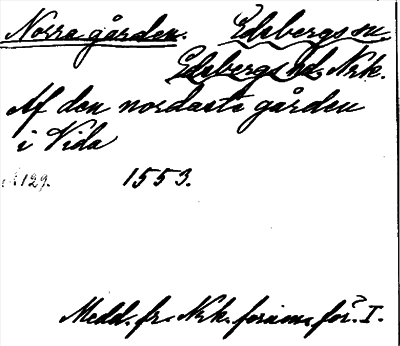 Norra gården. Edsbergs sn.
Edsbergs hd, Nrk.
Af den nordaste gården
i Vida
N 129. 1553.
Medd. fr. Nrk. fornm. för. I.